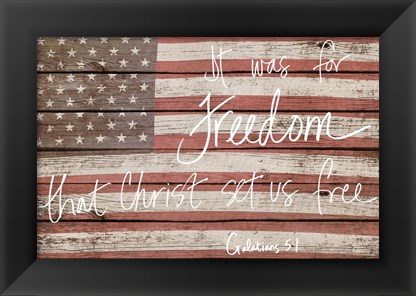 It was for
Freedom
that Christ set us free
Galatians 5:1